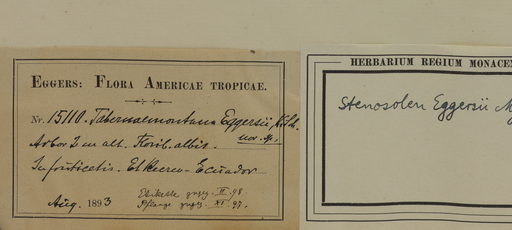 EGGERS: FLORA AMERICAE TROPICAE.
Nr. 15110. Tabernaemontana Eggersii,
nov. sp.
Arbor 2 m alt. Florib. albis.
In fruticetis. El Recreo - Ecuador
Aug. 1893
Etikette gezeg. II. 98
Pflanze gezeg. XI. 97.
HERBARIUM REGIUM MONACEN
Stenosolen Eggersii